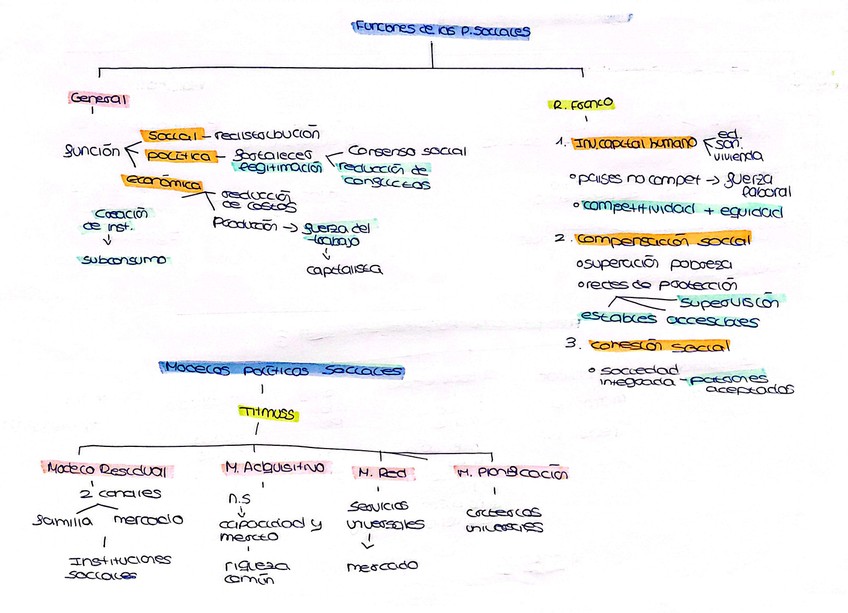 Funciones de las P. Sociales
General
función
Social - redistribución
política - fortalecer
legitimación
Consenso social
reducción de
conflictos
económica
reducción
de costos
Producción → fuerza del
trabajo
↓
capitalista
Creación
de inst.
↓
subconsumo
R. Franco
1. Inv. capital humano
ed.
san.
vivienda
países no compet → fuerza
laboral
competitividad + equidad
2. Compensación social
superación pobreza
redes de protección
supervisión
estables accesibles
3. cohesión social
sociedad
integrada - patrones
aceptados
Modelos Políticas Sociales
Titmuss
Modelo Residual
2 canales
familia mercado
Instituciones
sociales
M. Acquisitivo
n.s
↓
mérito
riqueza
común
M. Red
servicios
universales
↓
mercado
criterios
universales